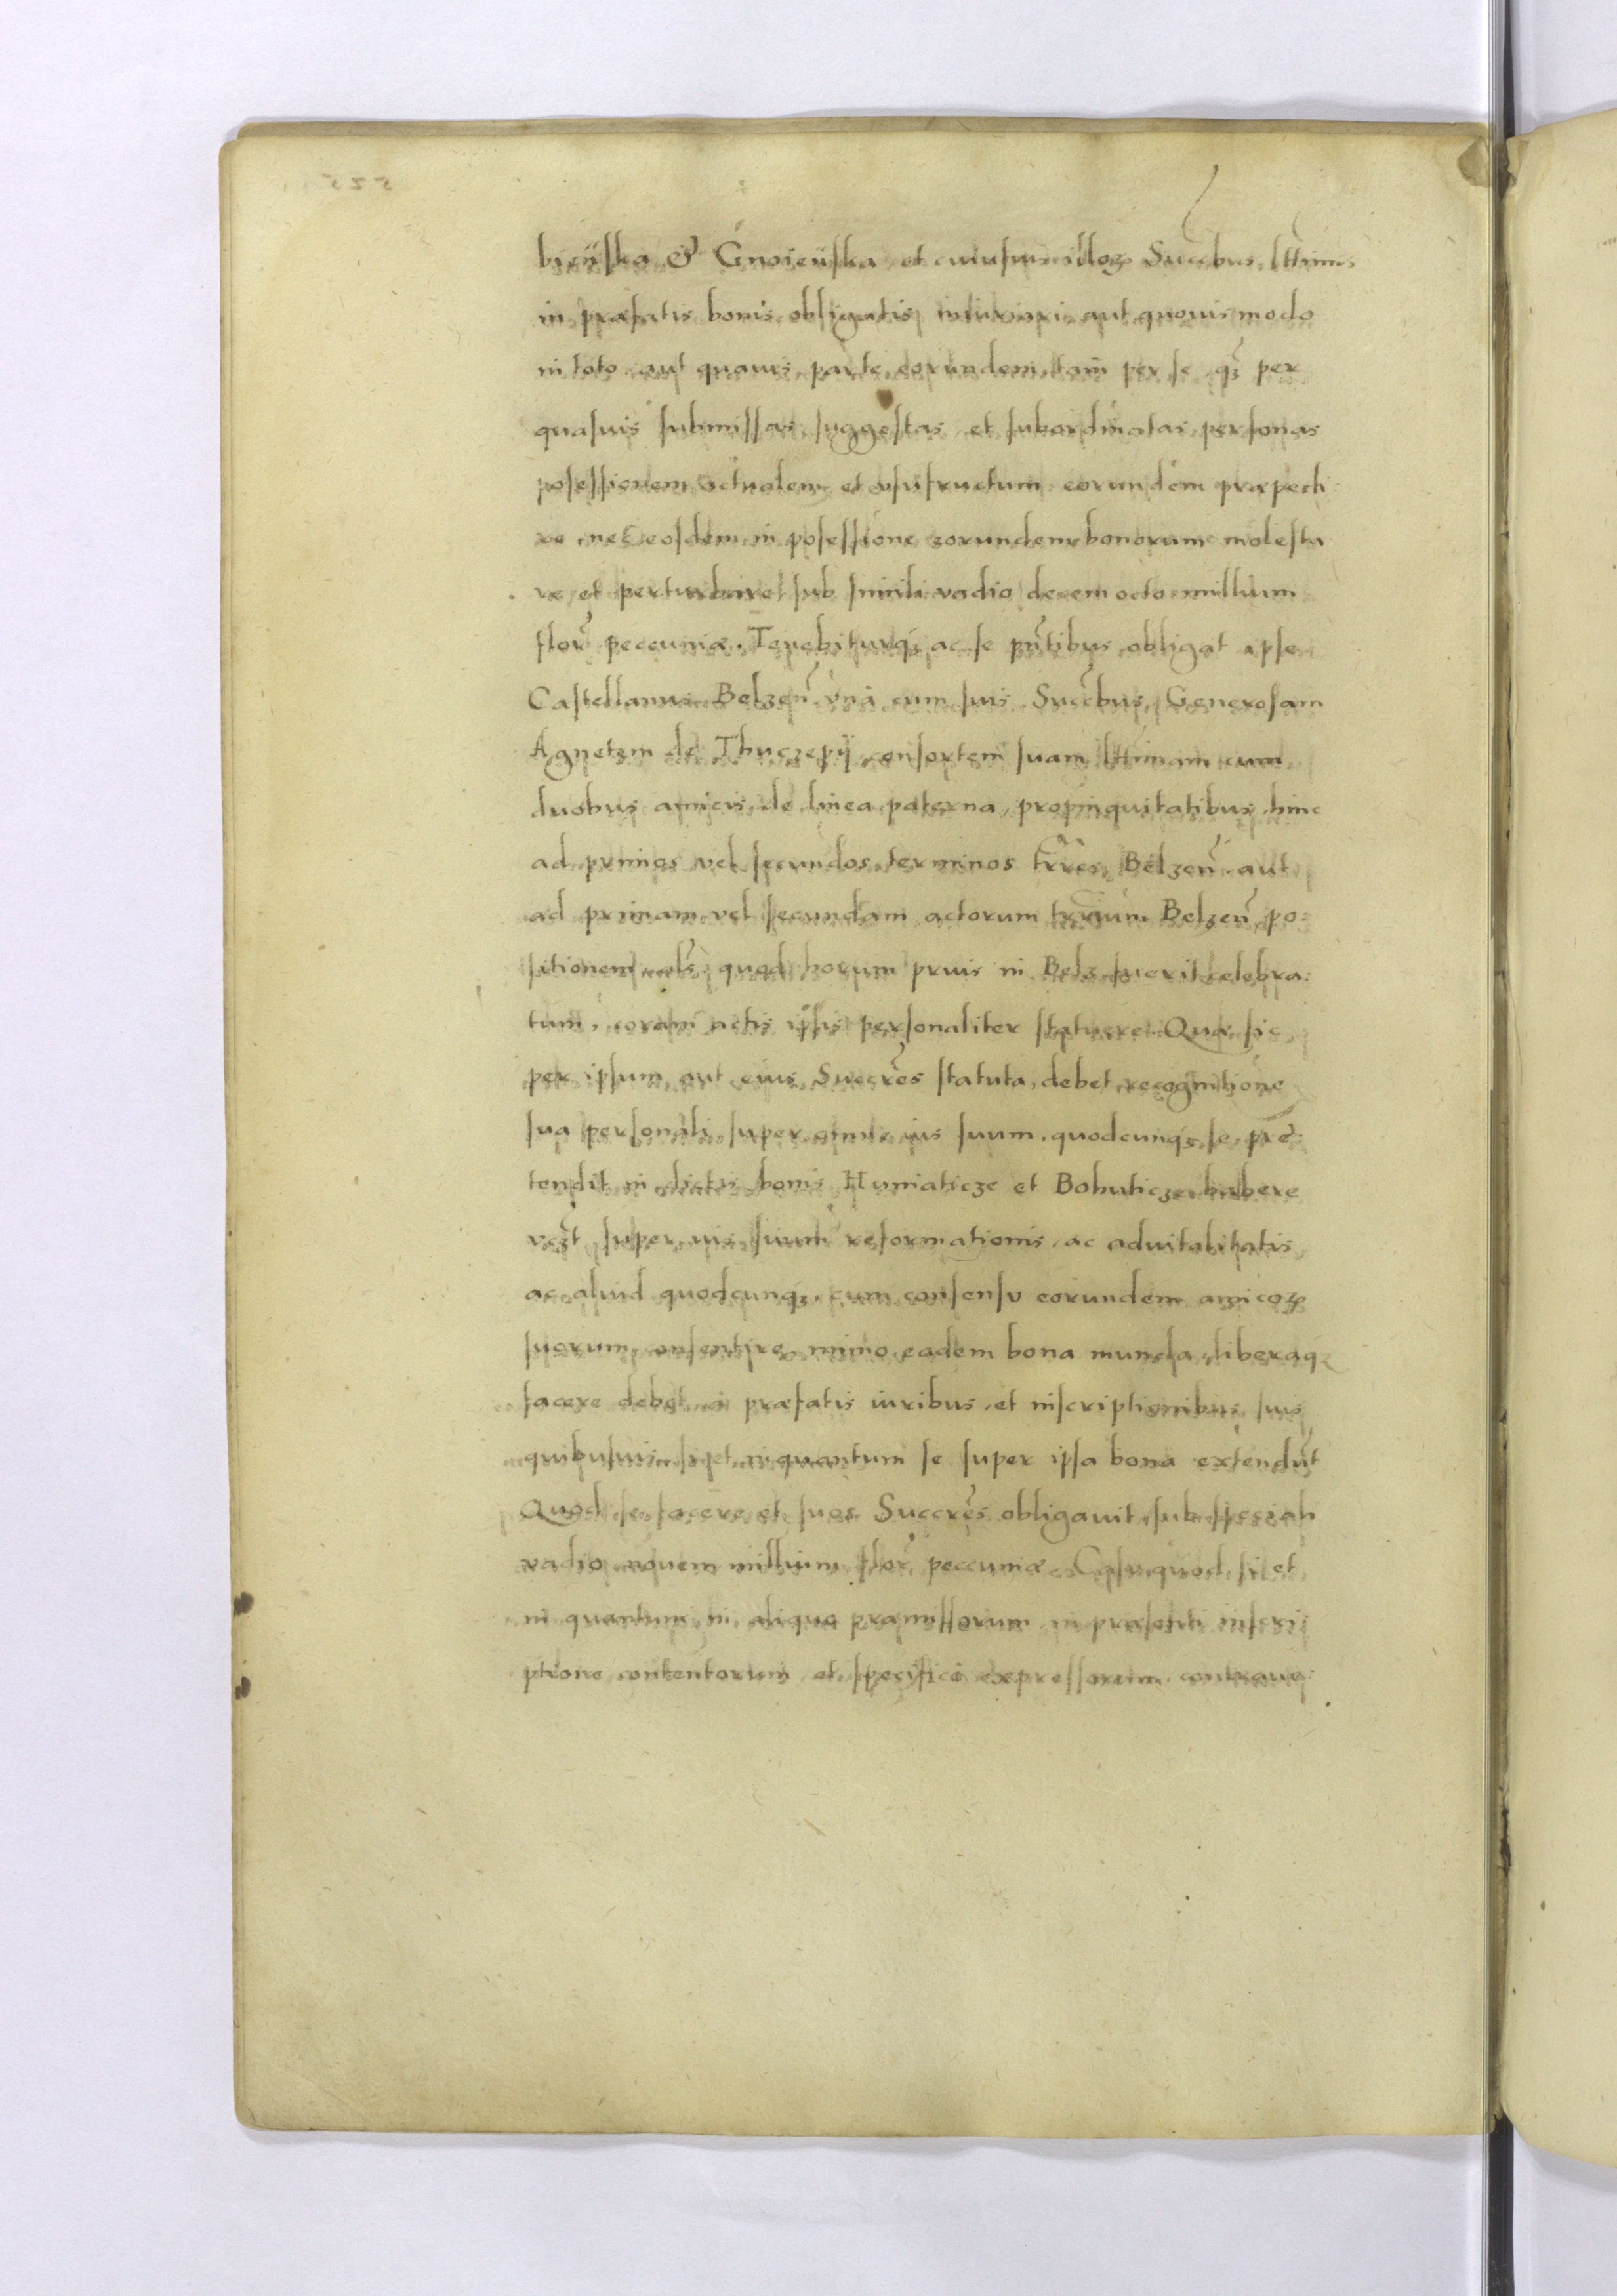 bieüska & Gnoieüska et cuiusuis illoꝝ Succbus lttimis
in præfatis bonis obligatis iniuriari aut quouis modo
in toto aut quauis parte eorundem tam per se qz per
quasuis submissas suggestas et subordinatas personas
posessionem actualem et usufructum eorundem præpedi
re, nec eosdem in posessione eorundem bonorum molesta
re et perturbare sub simili vadio decem octo millium
flor peccuniæ. Tenebiturqz ac se pntibus obligat ipse
Castellanus Belzen vnà cum suis Succbus, Generosam
Agnetem de Thuczepij consortem suam lttimam cum
duobus amicis de linea paterna, propinquitatibus, hinc
ad primos vel secundos terminos trres Belzen aut
ad primam vel secundam actorum trrium Belzen po:
sitionem als quod horum prius in Belz fuerit celebra:
tum, coram actis ipsis personaliter statuere. Quæ sic
per ipsum aut eius Succres statuta, debet recognitione
sua personali super omne ius suum, quodcunqz se præ:
tendit in dictis bonis Humiaticze et Bohuticze habere
vczt super ius suum reformationis ac aduitalitatis
ac aliud quodcunqz, cum consensu eorundem amicoꝝ
suorum consentire, immo eadem bona munda, liberaqz
facere debet à præfatis iuribus et inscriptionibus suis
quibusuis si et inquantum se super ipsa bona extendut
Quod se facere et suos Succres obligauit sub speciali
vadio nouem millium flor peccuniæ. Casu quod si et
in quantum in aliquo præmissorum in præsenti inscri:
ptione contentorum et specificè expressorum contraue: